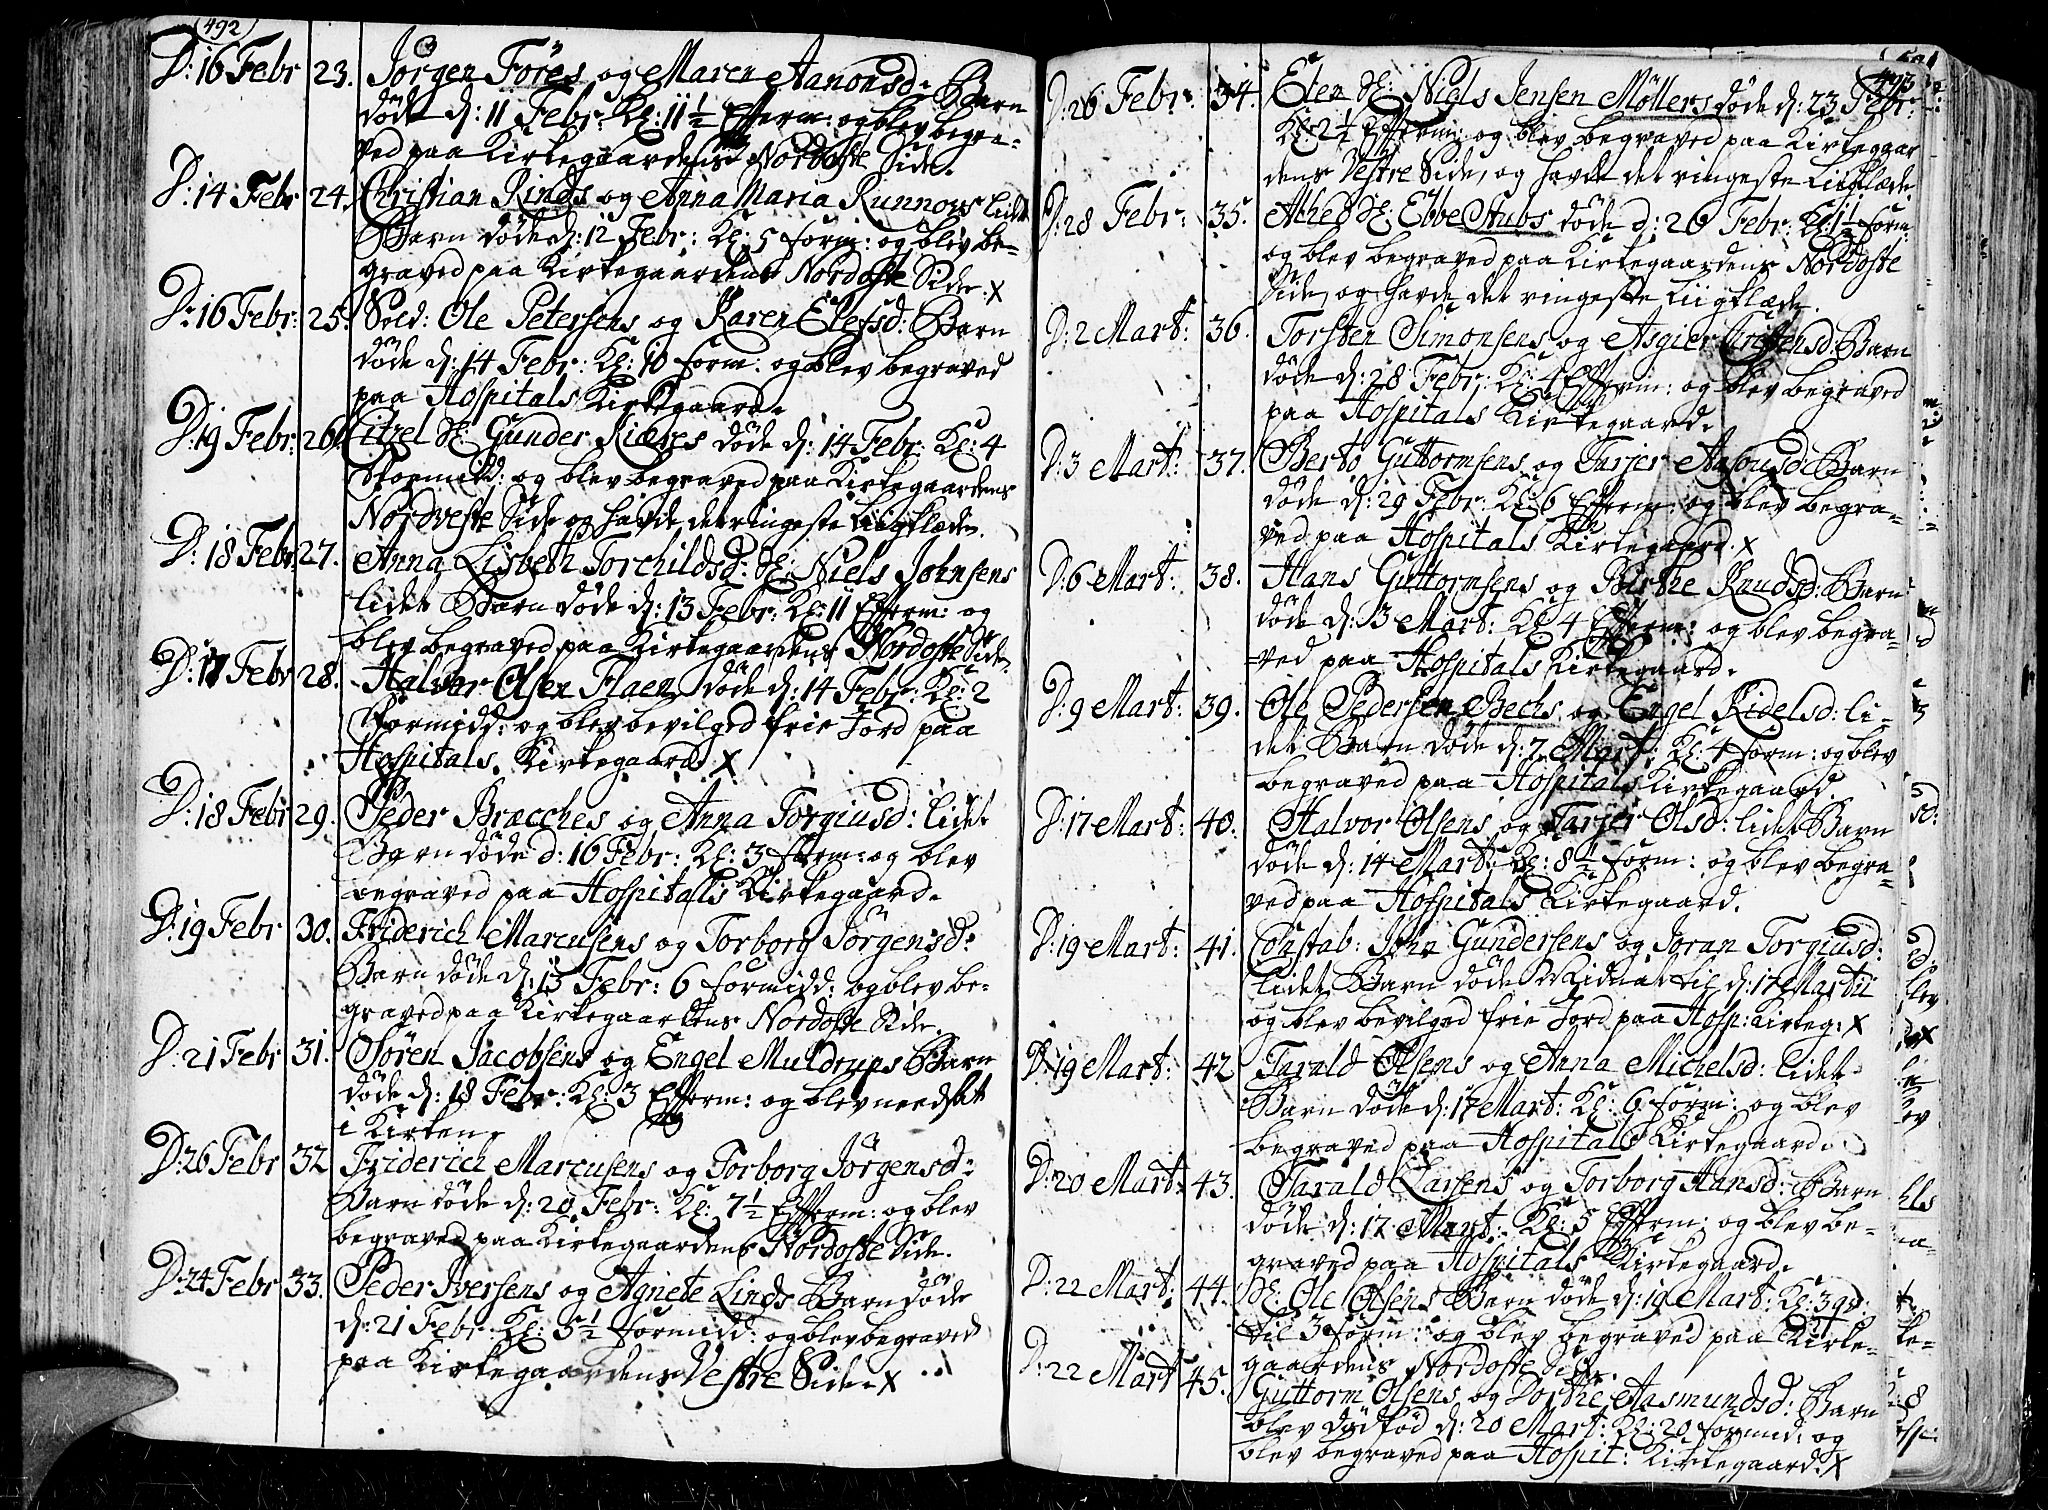 492
D: 16 Febr 23. Jørgen Föres og Maren Aanonsd: Barn
døde d: 11 Febr: Kl: 11½ Efterm: og blev begra-
ved paa Kirkegaardens Nordoste Side.
D: 14 Febr 24. Christian Rinds og Anna Maria Runnows lidet
Barn døde d: 12 Febr: Kl: 5 form: og blev be-
graved paa Kirkegaardens Nordoste Side: X
D: 16 Febr: 25. Sold: Ole Petersens og Karen Elefsd: Barn
døde d: 14 Febr: Kl: 10 form: og blev begraved
paa Hospitals Kirkegaard.
D: 19 Febr: 26. Citzel Sl: Gunder Kiæres døde d: 14 Febr: Kl: 4
formidd: og blev begraved paa Kirkegaardens
Nordveste Side og havde det ringeste Liigklæde.
D: 18 Febr 27. Anna Lisbeth Torchildsd: Sl: Niels Johnsens
lidet Barn døde d: 13 Febr: Kl: 11 Efterm: og
blev begraved paa Kirkegaardens Nordoste Side.
D: 17 Febr 28. Halvor Olsen Flaen døde d: 14 Febr: Kl: 2
formidd: og blev bevilged frie Jord paa
Hospitals Kirkegaard X
D: 18 Febr 29. Peder Bracches og Anna Torgiusd: lidet
Barn døde d: 16 Febr: Kl: 3 form: og blev
begraved paa Hospitals Kirkegaard.
D: 19 Febr 30. Friderich Marcusens og Torborg Jörgensd:
Barn døde d: 15 Febr: 6 formidd: og blev be-
graved paa Kirkegaardens Nordoste Side.
D: 21 Febr 31. Sören Jacobsens og Engel Muldrups Barn
døde d: 18 Febr: Kl: 3 Efterm: og blev needsat
i Kirken.
D: 26 Febr 32 Friderich Marcusens og Torborg Jörgensd:
Barn døde d: 20 Febr: Kl: 7½ Efterm: og blev
begraved paa Kirkegaardens Nordoste Side.
D: 24 Febr 33. Peder Iversens og Agnete Linds Barn døde
d: 21 Febr: Kl: 5½ formidd: og blev begraved
paa Kirkegaardens Vestre Side. X
493
D: 26 Febr: 34. Elen Sl: Niels Jensen Møllers døde d: 23 Febr:
Kl: 2½ Efterm: og blev begraved paa Kirkegaar
dens Vestre Side, og havde det ringeste Liigklæde.
D: 28 Febr: 35. Alhed Sl: Ebbe Stubs døde d: 26 Febr: Kl: 1½ form:
og blev begraved paa Kirkegaardens Nordoste
Side, og havde det ringeste Liigklæde.
D: 2 Mart: 36. Torsten Simonsens og Asgier Christensd: Barn
døde d: 28 Febr: Kl: 4 Efterm: og blev begraved
paa Hospitals Kirkegaard.
D: 3 Mart: 37. Berto Guttormsens og Tarjer Aasousd: Barn
døde d: 29 Febr: Kl: 6 Efterm: og blev begra-
ved paa Hospitals Kirkegaard. X
D: 6 Mart: 38. Hans Guttormsens og Birthe Knudsd: Barn
døde d: 3 Mart: Kl: 4 Efterm: og blev begra-
ved paa Hospitals Kirkegaard.
D: 9 Mart: 39. Ole Pedersen Bechs og Engel Kidelsd: li-
det Barn døde d: 7 Mart: Kl: 4 form: og blev
begraved paa Hospitals Kirkegaard.
D: 17 Mart: 40. Halvor Olsens og Tarjer Olsd: lidet Barn
døde d: 14 Mart: Kl: 8½ form: og blev begra-
ved paa Hospitals Kirkegaard.
D: 19 Mart: 41. Constab: John Gundersens og Joran Torgiusd:
lidet Barn døde Midnat til d: 17 Martii
og blev bevilged frie Jord paa Hosp: Kirkeg: X
D: 19 Mart: 42 Tarald Olsens og Anna Michelsd: lidet
Barn døde d: 17 Mart: Kl: 6 form: og blev
begraved paa Hospitals Kirkegaard.
D: 20 Mart: 43. Tarald Larsens og Torborg Hansd: Barn
døde d: 17 Mart: Kl: 5 Efterm: og blev be-
graved paa Hospitals Kirkegaard.
D: 22 Mart: 44. Sl: Ole Olsens Barn døde d: 19 Mart: Kl: 3 qv:
til 3 form: og blev begraved paa Kirke-
gaardens Nordoste Side.
D: 22 Mart 45. Guttorm Olsens og Dorthe Aasmundsd: Barn
blev dødfød d: 20 Mart: Kl: 20 formid: og
blev begraved paa Hospit: Kirkegaard. X